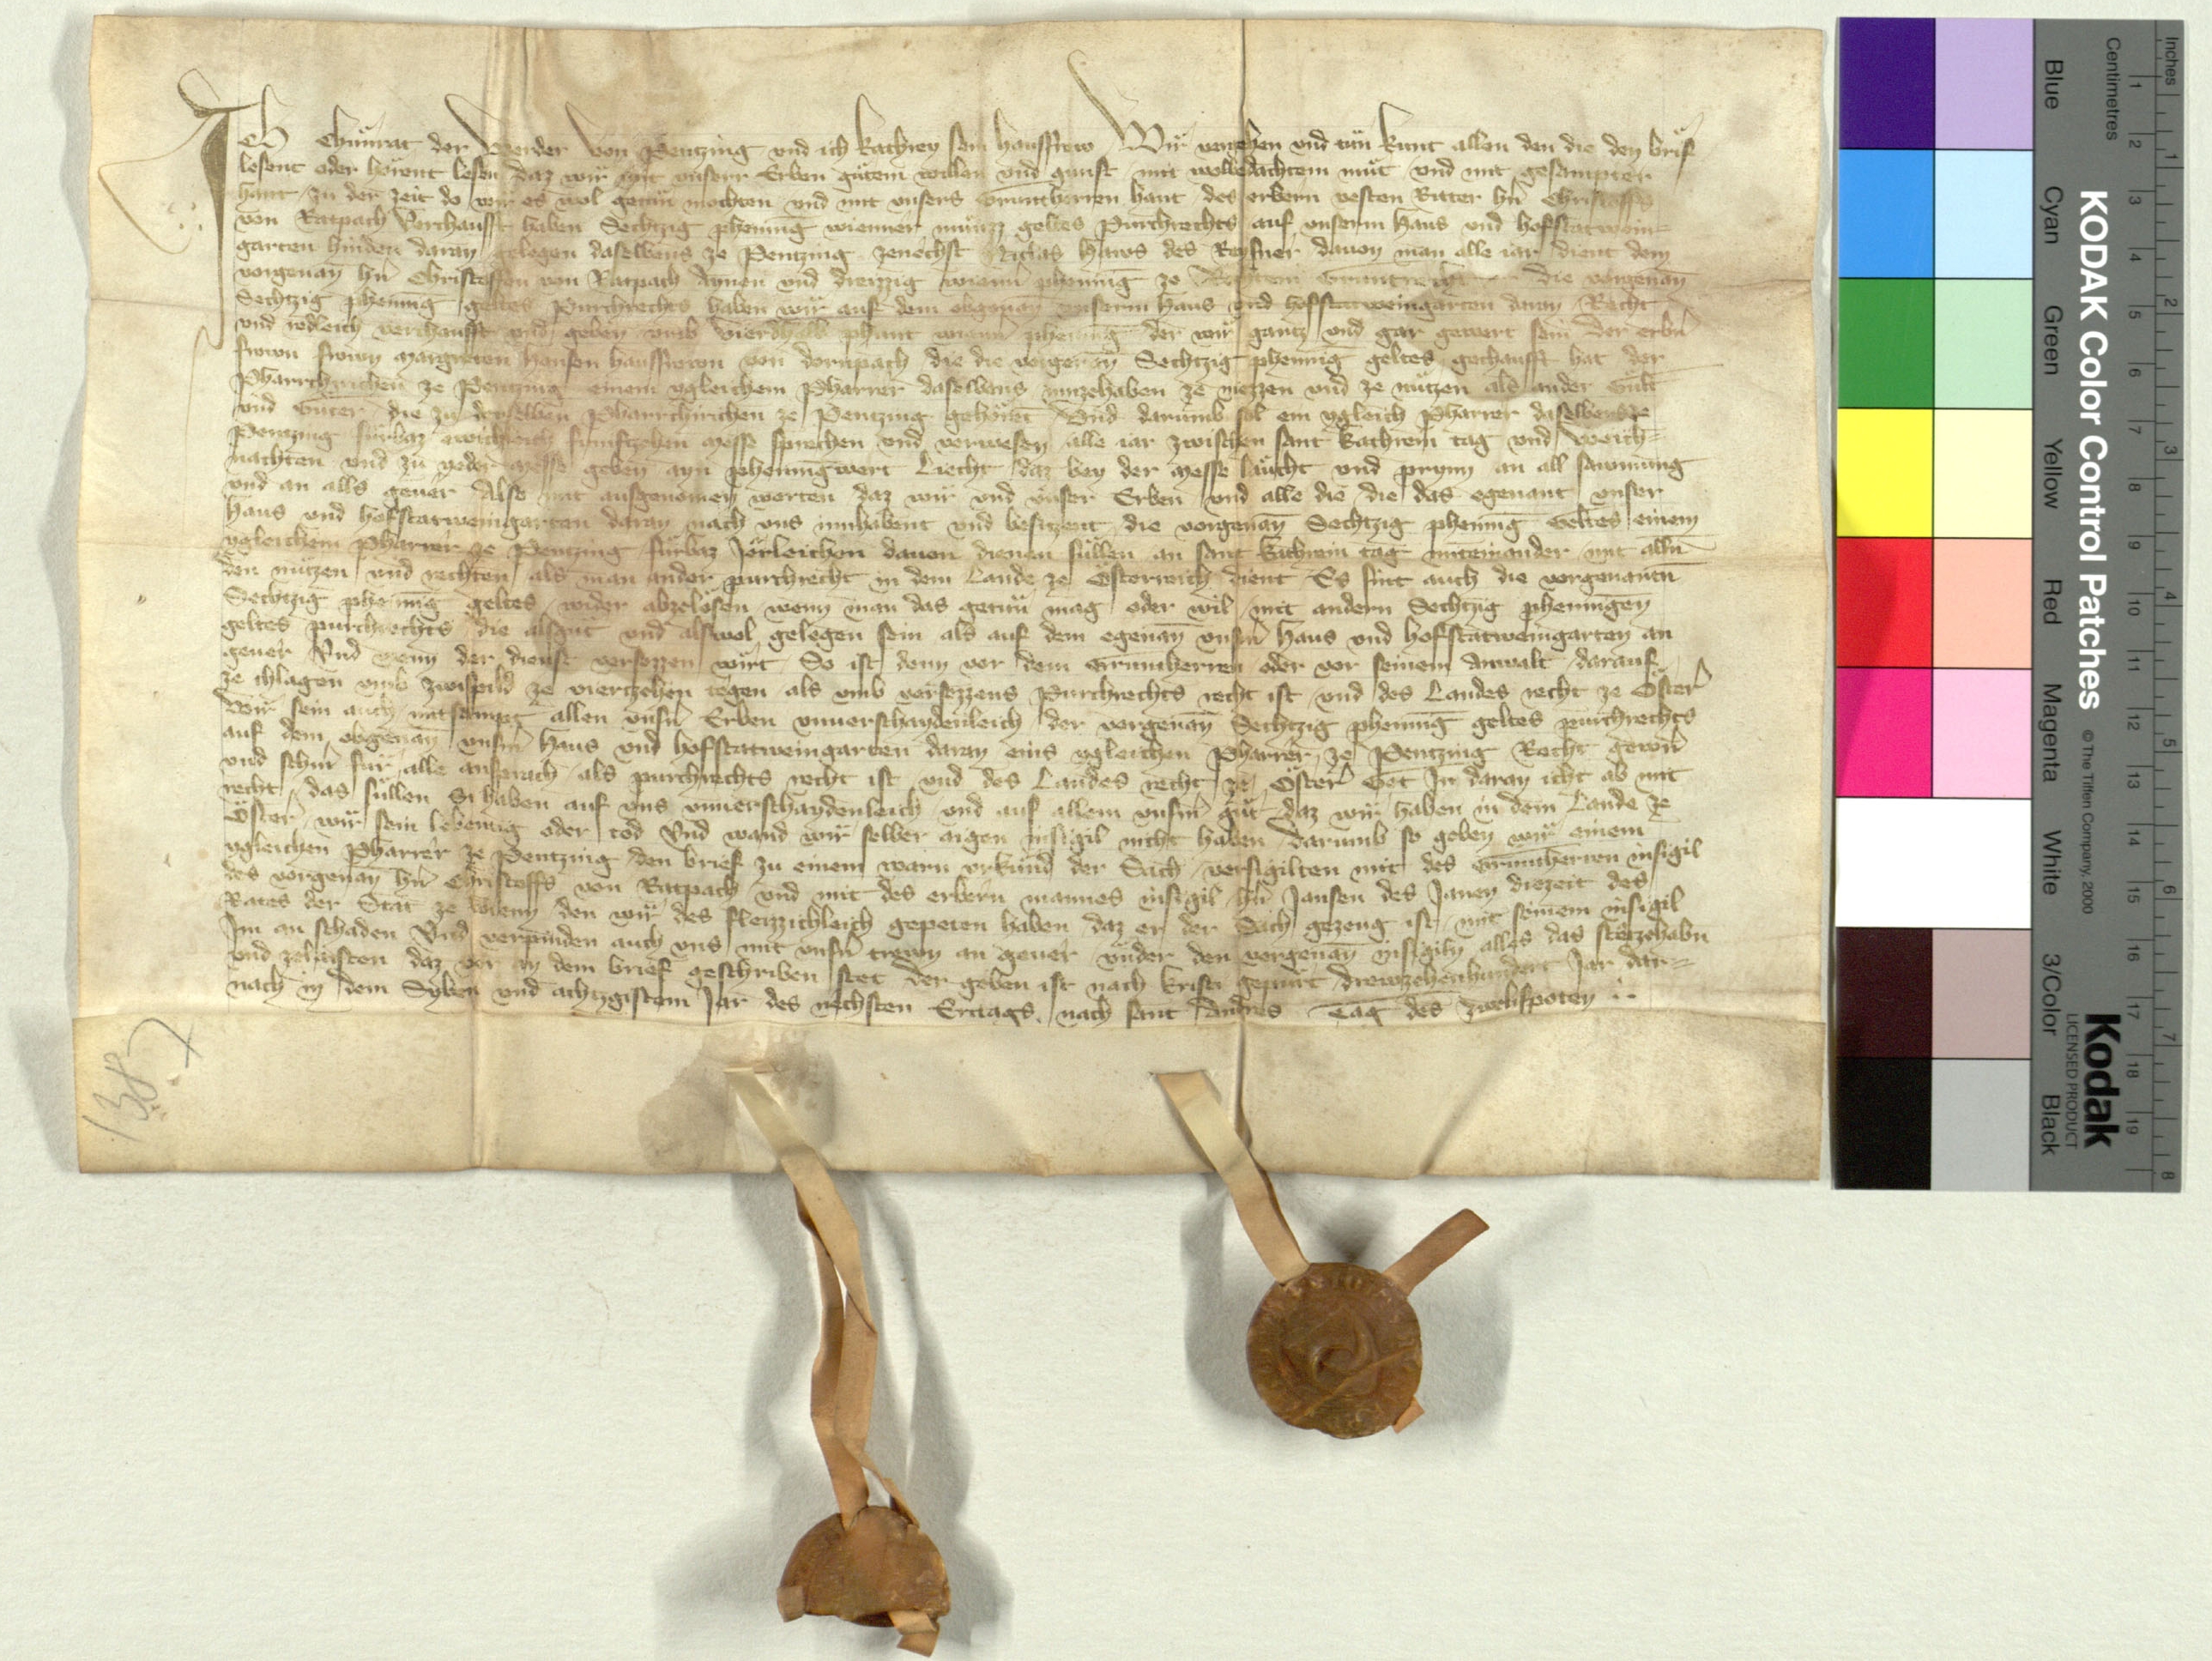 Ich Chunrat der Werder von Pentzing vnd ich kathrey sein hausfrow Wir veriehen vnd tün kunt allen den die den brif
lesent oder hörent lesen daz wir mit vnserr Erben gütem willen vnd gunst mit wolbedachtem müt vnd mit gesampter
hant zu der zeit do wir es wol getün mochten vnd mit vnsers Gruntherren hant des erbern vesten Ritter hn Christoffs
von Ratpach Verchaufft haben Sechtzig phenning wienner münzz geltes Purchrechts auf vnserm Haus vnd hofstatwein=
garten hinden daran gelegen daselbens ze Pentzing zenechst Haws des dauon man alle iar dient dem
vorgenan hn Christoffen von Ratpach Aynen vnd dreizzig wienn phenning ze Gruntrecht die vorgenan
Sechtzig phenning geltes Purchrechts haben wir auf dem obgenan vnserm Haus vnd hofstatweingarten daran Recht
vnd redleich verchaufft vnd geben vmb vierdhalb phunt wienn phenning der wir gantz vnd gar gewert sein der erbn
frown frown Margreten Hansen hausfrown von dornpach die die vorgenan Sechtzig phennig geltes gechaufft hat der
Pharrchirichen ze Pentzing einem ygleichem Pharrer daselbens innzehaben ze niezzen vnd ze nützen als ander Gült
vnd Güter die zu derselben Pharrchirichen ze Pentzing gehörnt Vnd darumb sol ein ygleich Pharrer daselbens ze
Pentzing fürbaz ewichleich fümftzehen messe sprechen vnd verwesen alle iar zwischen sant kathrein tag vnd Weich=
nachten vnd zu yeder messe geben ayn phenningwert Liecht daz bey der messe läucht vnd prynn an all sawmung
vnd an alls geuer Also mit ausgenomen worten daz wir vnd vnser Erben vnd alle die die das egenant vnser
Haus vnd hofstatweingarten daran nach vns innhabent vnd besizent die vorgenan Sechtzig phening Geltes einem
ygleichem Pharrer ze Pentzing fürbaz Jerleichen dauon dienen süllen an sant kathrein tag miteinander mit alln
den nützen vnd rechten als man ander purchrecht in dem Lande ze Österreich dient Es sint auch die vorgenantn
Sechtzig phening geltes wider abzelösen wenn man das getün mag oder wil mit andern Sechtzig pheningen
geltes purchrechts die alsgüt vnd alswol gelegen sein als auf dem egenan vnsm Haus vnd hofstatweingarten an
geuer Vnd wenn der dienst versezzen wirt So ist denn vor dem Gruntherren oder vor seinem Anwalt darauf
ze chlagen vmb zwispild ze viertzehen tegen als vmb versezzens Purchrechts recht ist vnd des Landes recht ze Öster
Wir sein auch mitsampt allen vnsn Erben vnuerschaydenleich der vorgenan Sechtzig phenning geltes purchrechts
auf dem obgenan vnsm Haus vnd hofstatweingarten daran eins ygleichen Pharrer ze Pentzing Recht gewern
vnd scherm für alle ansprach als purchrechts recht ist vnd des Landes recht ze Öster Get In daran icht ab mit
recht das süllen Si haben auf vns vnuerschaydenleich vnd auf allem vnsm güt daz wir haben in dem Lande ze
Öster wir sein lebentig oder tod Vnd wand wir selber aigen insigil nicht haben darumb so geben wir einem
ygleichen Pharrer ze Pentzing den brief zu einem warn vrkund der Sach versigilten mit des Gruntherren insigil
des vorgenan hn Christoffs von Ratpach vnd mit des erbern mannes insigil hn Jansen des Janen diezeit des
Rates der Stat ze wienn den wir des fleizzichleich gepeten haben daz er der Sach gezeug ist mit seinem insigil
Im an schaden Vnd verpinden auch vns mit vnsn trewn an geuer vnder den vorgenan insigiln alles das stetzehabn
vnd zelaisten daz vor an dem brief geschriben stet Der geben ist nach kristi gepurt drewzehenhundert Jar dar=
nach in dem Syben vnd achtzgistem Jar des nechsten Erctags nach sant Andres Tag des zwelfpoten
1387
KODAK Color Control Patches © The Tiffen Company, 2000
Kodak
LICENSED PRODUCT
Inches 1 2 3 4 5 6 7 8
Centimetres 1 2 3 4 5 6 7 8 9 10 11 12 13 14 15 16 17 18 19
Blue Cyan Green Yellow Red Magenta White 3/Color Black